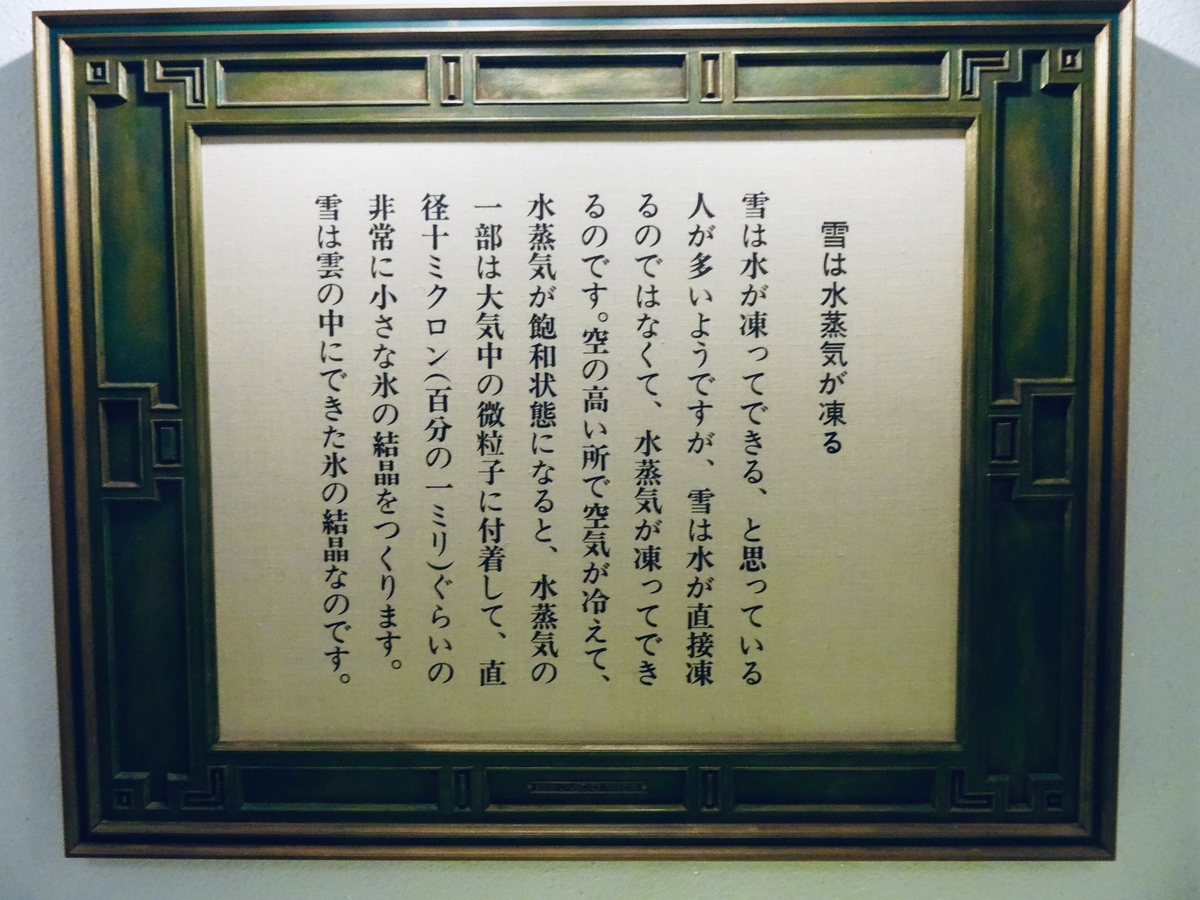 雪は水蒸気が凍る
雪は水が凍ってできる、と思っている
人が多いようですが、雪は水が直接凍
るのではなくて、水蒸気が凍ってでき
るのです。空の高い所で空気が冷えて、
水蒸気が飽和状態になると、水蒸気の
一部は大気中の微粒子に付着して、直
径十ミクロン(百分の一ミリ)ぐらいの
非常に小さな氷の結晶をつくります。
雪は雲の中にできた氷の結晶なのです。